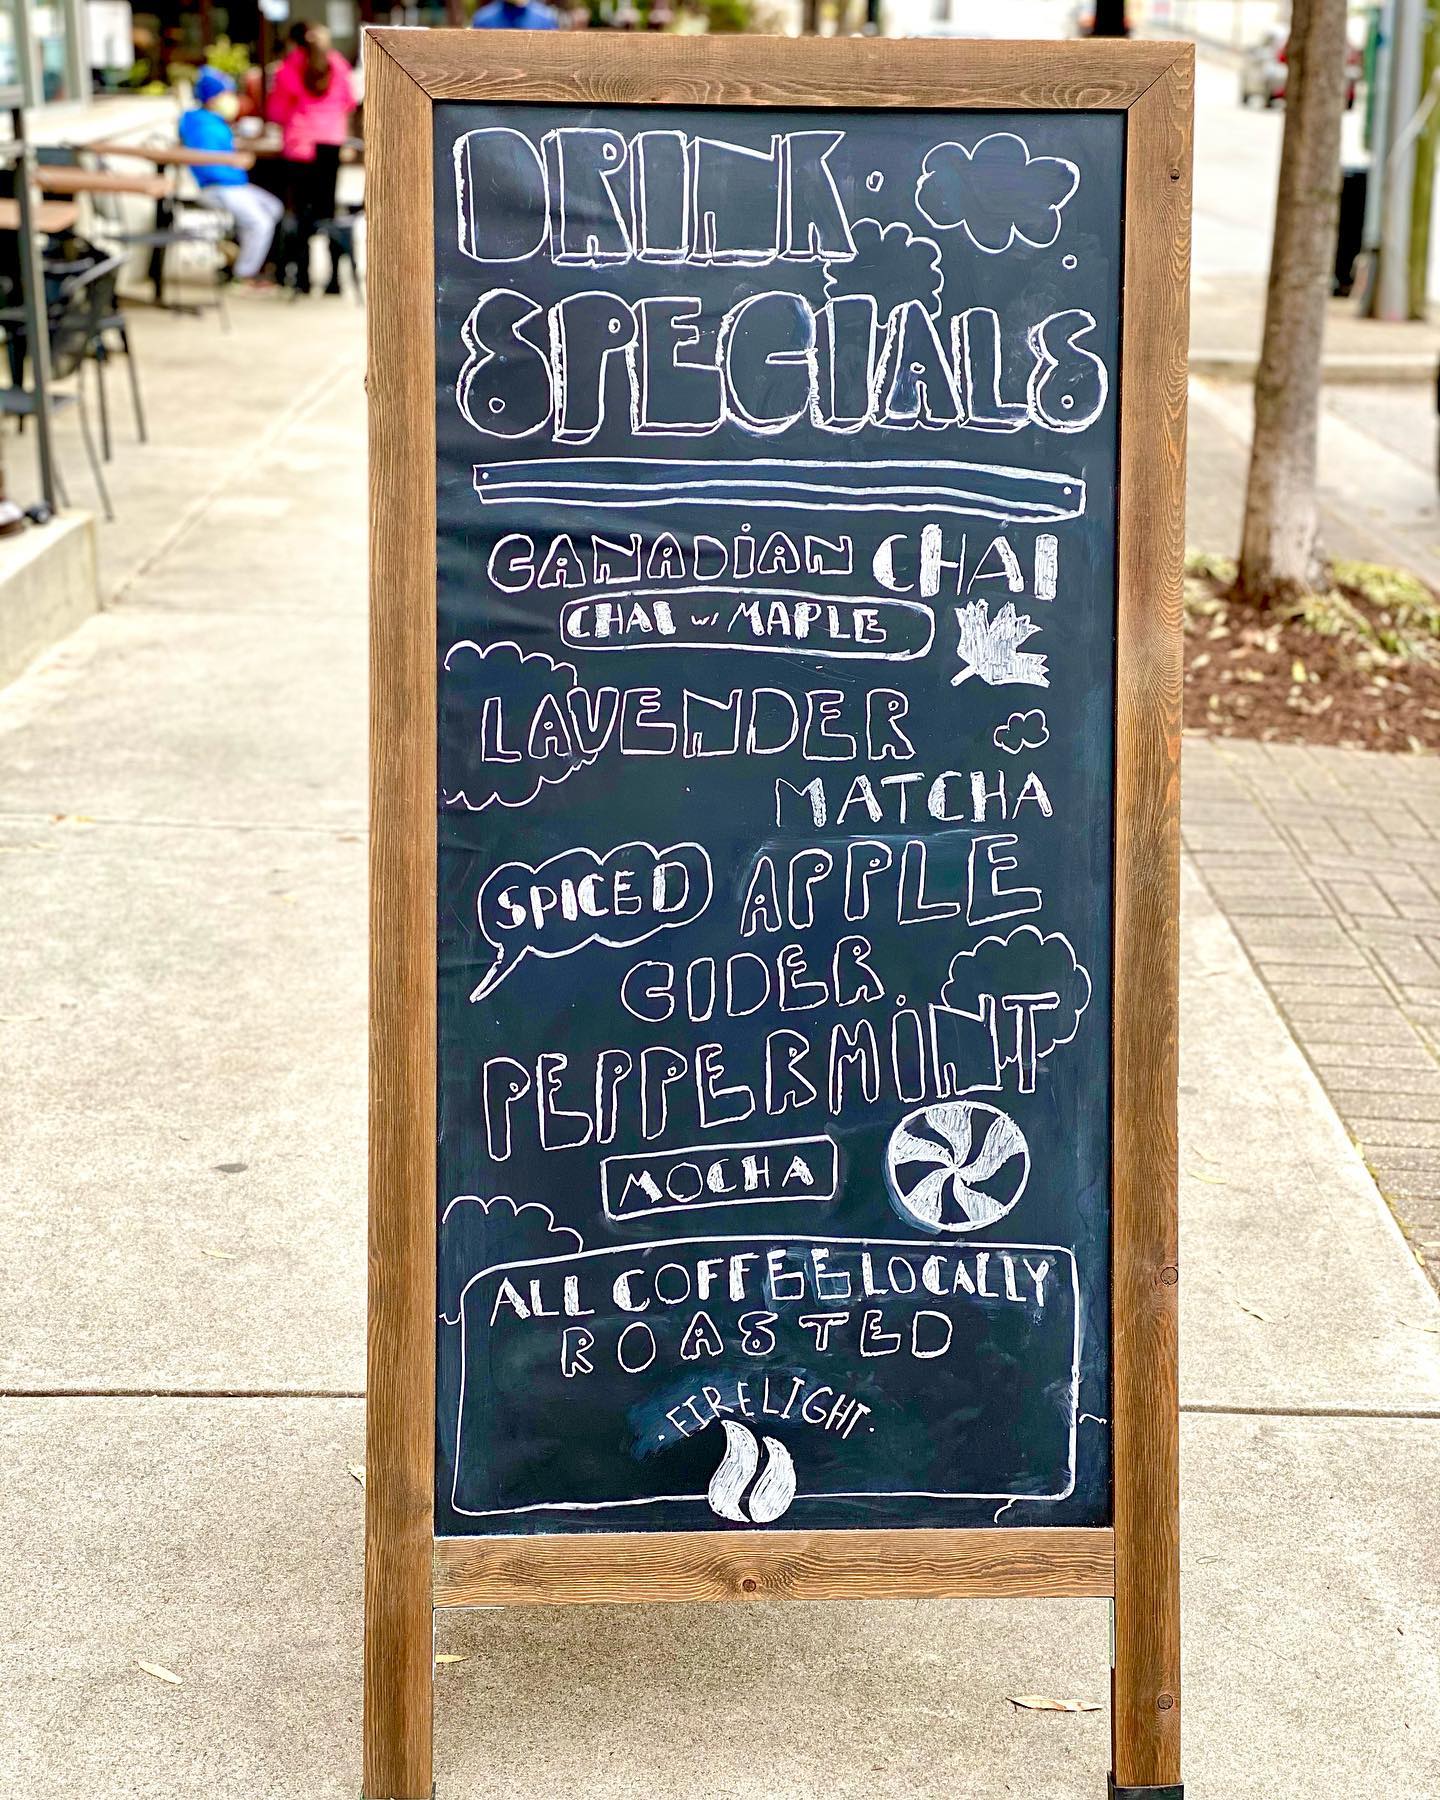 DRINK
SPECIALS
CANADIAN CHAI
CHAI w/ MAPLE
LAVENDER
MATCHA
SPICED APPLE
CIDER
PEPPERMINT
MOCHA
ALL COFFEE LOCALLY
ROASTED
·FIRELIGHT·